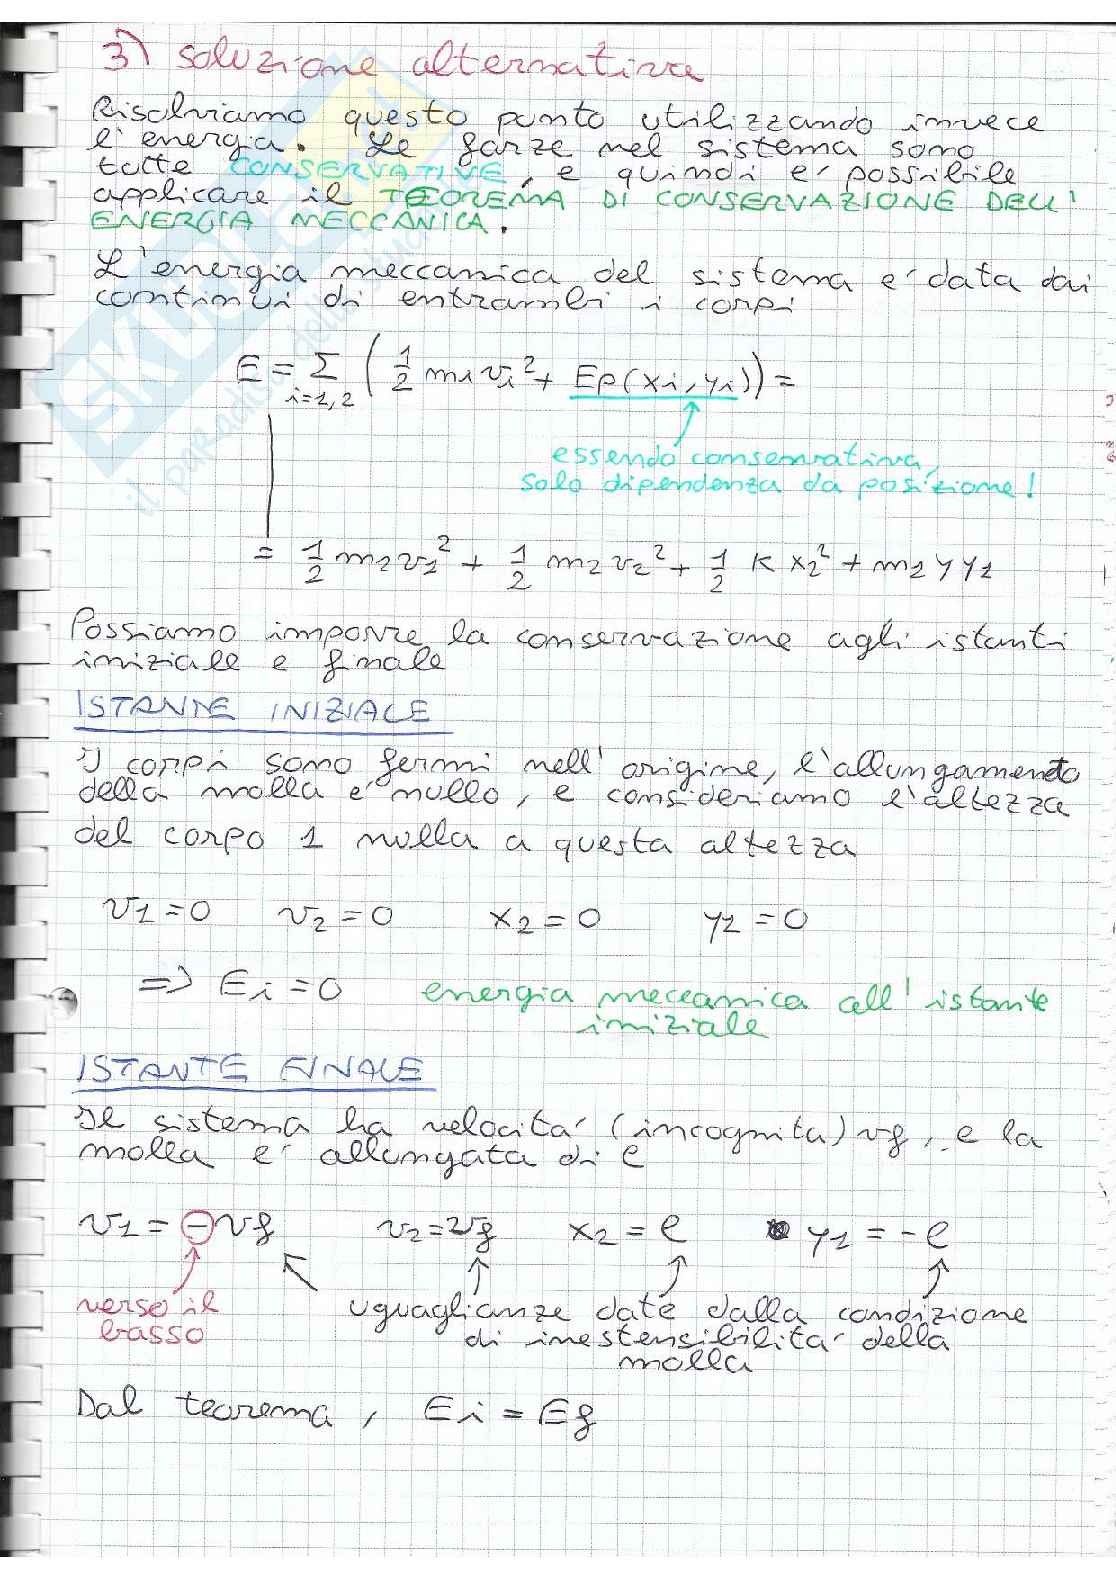 3) soluzione alternativa
Risolviamo questo punto utilizzando invece
l'energia. Le forze nel sistema sono
tutte CONSERVATIVE, e quindi e' possibile
applicare il TEOREMA DI CONSERVAZIONE DELL'
ENERGIA MECCANICA.
L'energia meccanica del sistema e' data dai
contributi di entrambi i corpi
E = Σ i=1,2 ( 1/2 m₁ vᵢ² + Ep(xᵢ, yᵢ)) =
essendo conservativa,
solo dipendenza da posizione!
= 1/2 m₁ v₁² + 1/2 m₂ v₂² + 1/2 K x₂² + m₁ g y₁
Possiamo imporre la conservazione agli istanti
iniziale e finale
ISTANTE INIZIALE
I corpi sono fermi nell'origine, l'allungamento
della molla e' nullo, e consideriamo l'altezza
del corpo 1 nulla a questa altezza
v₁ = 0 v₂ = 0 x₂ = 0 y₁ = 0
=> Ei = 0 energia meccanica all'istante
iniziale
ISTANTE FINALE
Il sistema ha velocita' (incognita) vf, e la
molla e' allungata di l
v₁ = -vf v₂ = vf x₂ = l y₁ = -l
verso il
basso
uguaglianze date dalla condizione
di inestensibilita' della
molla
Dal teorema, Ei = Ef